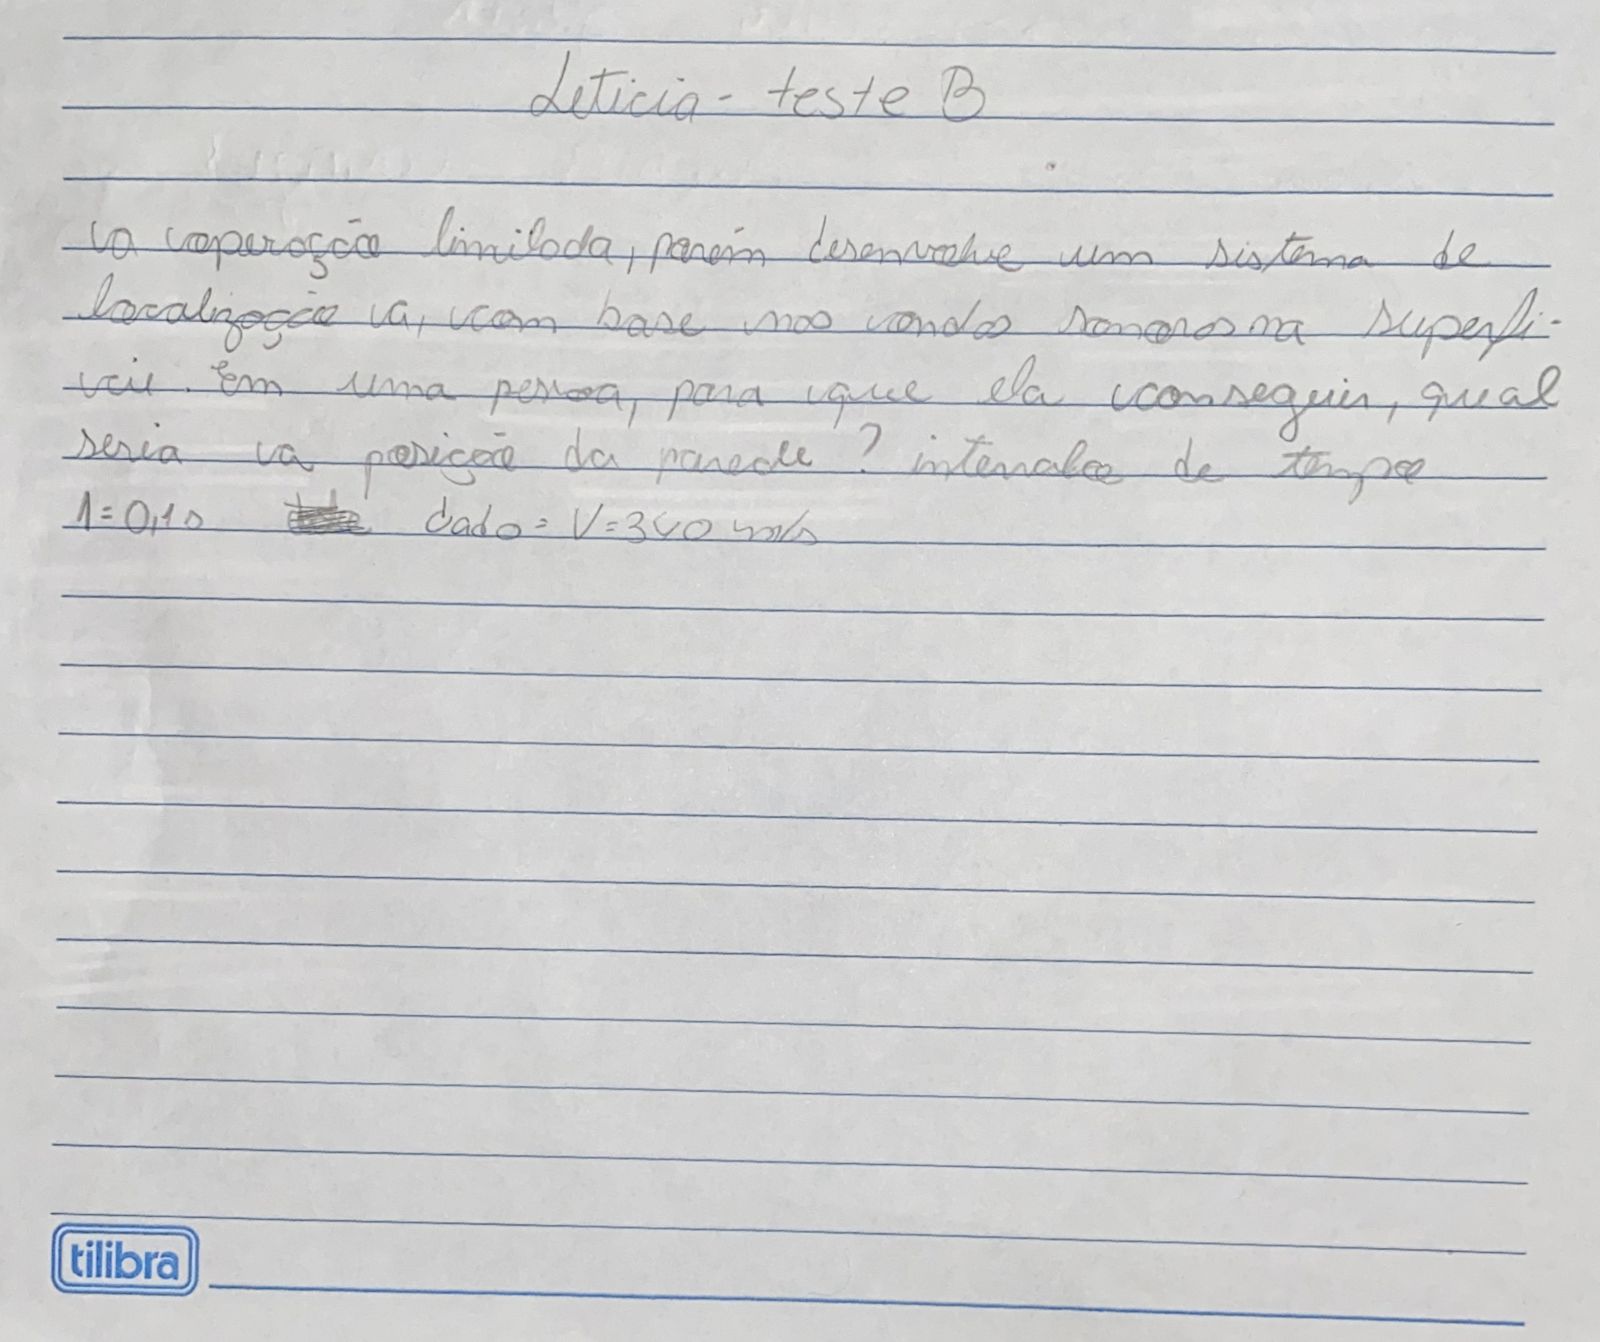 Leticia - teste B
a operação limitada, porém desenvolve um sistema de
localização a, com base nas ondas sonoras na superfí-
cie. Em uma pessoa, para que ela conseguir, qual
seria a posição da parede? intervalo de tempo
1=0,1s dado = V=340 m/s
tilibra